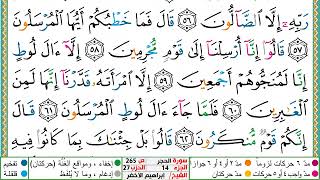 رَبِّهِۦٓ إِلَّا ٱلضَّآلُّونَ ٥٦ قَالَ فَمَا خَطْبُكُمْ أَيُّهَا ٱلْمُرْسَلُونَ
٥٧ قَالُوٓا۟ إِنَّآ أُرْسِلْنَآ إِلَىٰ قَوْمٍ مُّجْرِمِينَ ٥٨ إِلَّآ ءَالَ لُوطٍ
إِنَّا لَمُنَجُّوهُمْ أَجْمَعِينَ ٥٩ إِلَّا ٱمْرَأَتَهُۥ قَدَّرْنَآ إِنَّهَا لَمِنَ
ٱلْغَـٰبِرِينَ ٦٠ فَلَمَّا جَآءَ ءَالَ لُوطٍ ٱلْمُرْسَلُونَ ٦١ قَالَ
إِنَّكُمْ قَوْمٌ مُّنكَرُونَ ٦٢ قَالُوا۟ بَلْ جِئْنَـٰكَ بِمَا كَانُوا۟ فِيهِ
مدّ ٦ حركات لزوماً مدّ ٢ أو ٤ أو ٦ جوازاً
سورة الحجر ص 265
الجزء 14 الحزب 27
الشيخ/ إبراهيم الأخضر
إخفاء، ومواقع الغُنَّة (حركتان) تفخيم
إدغام، وما لا يُلفَظ قلقلة